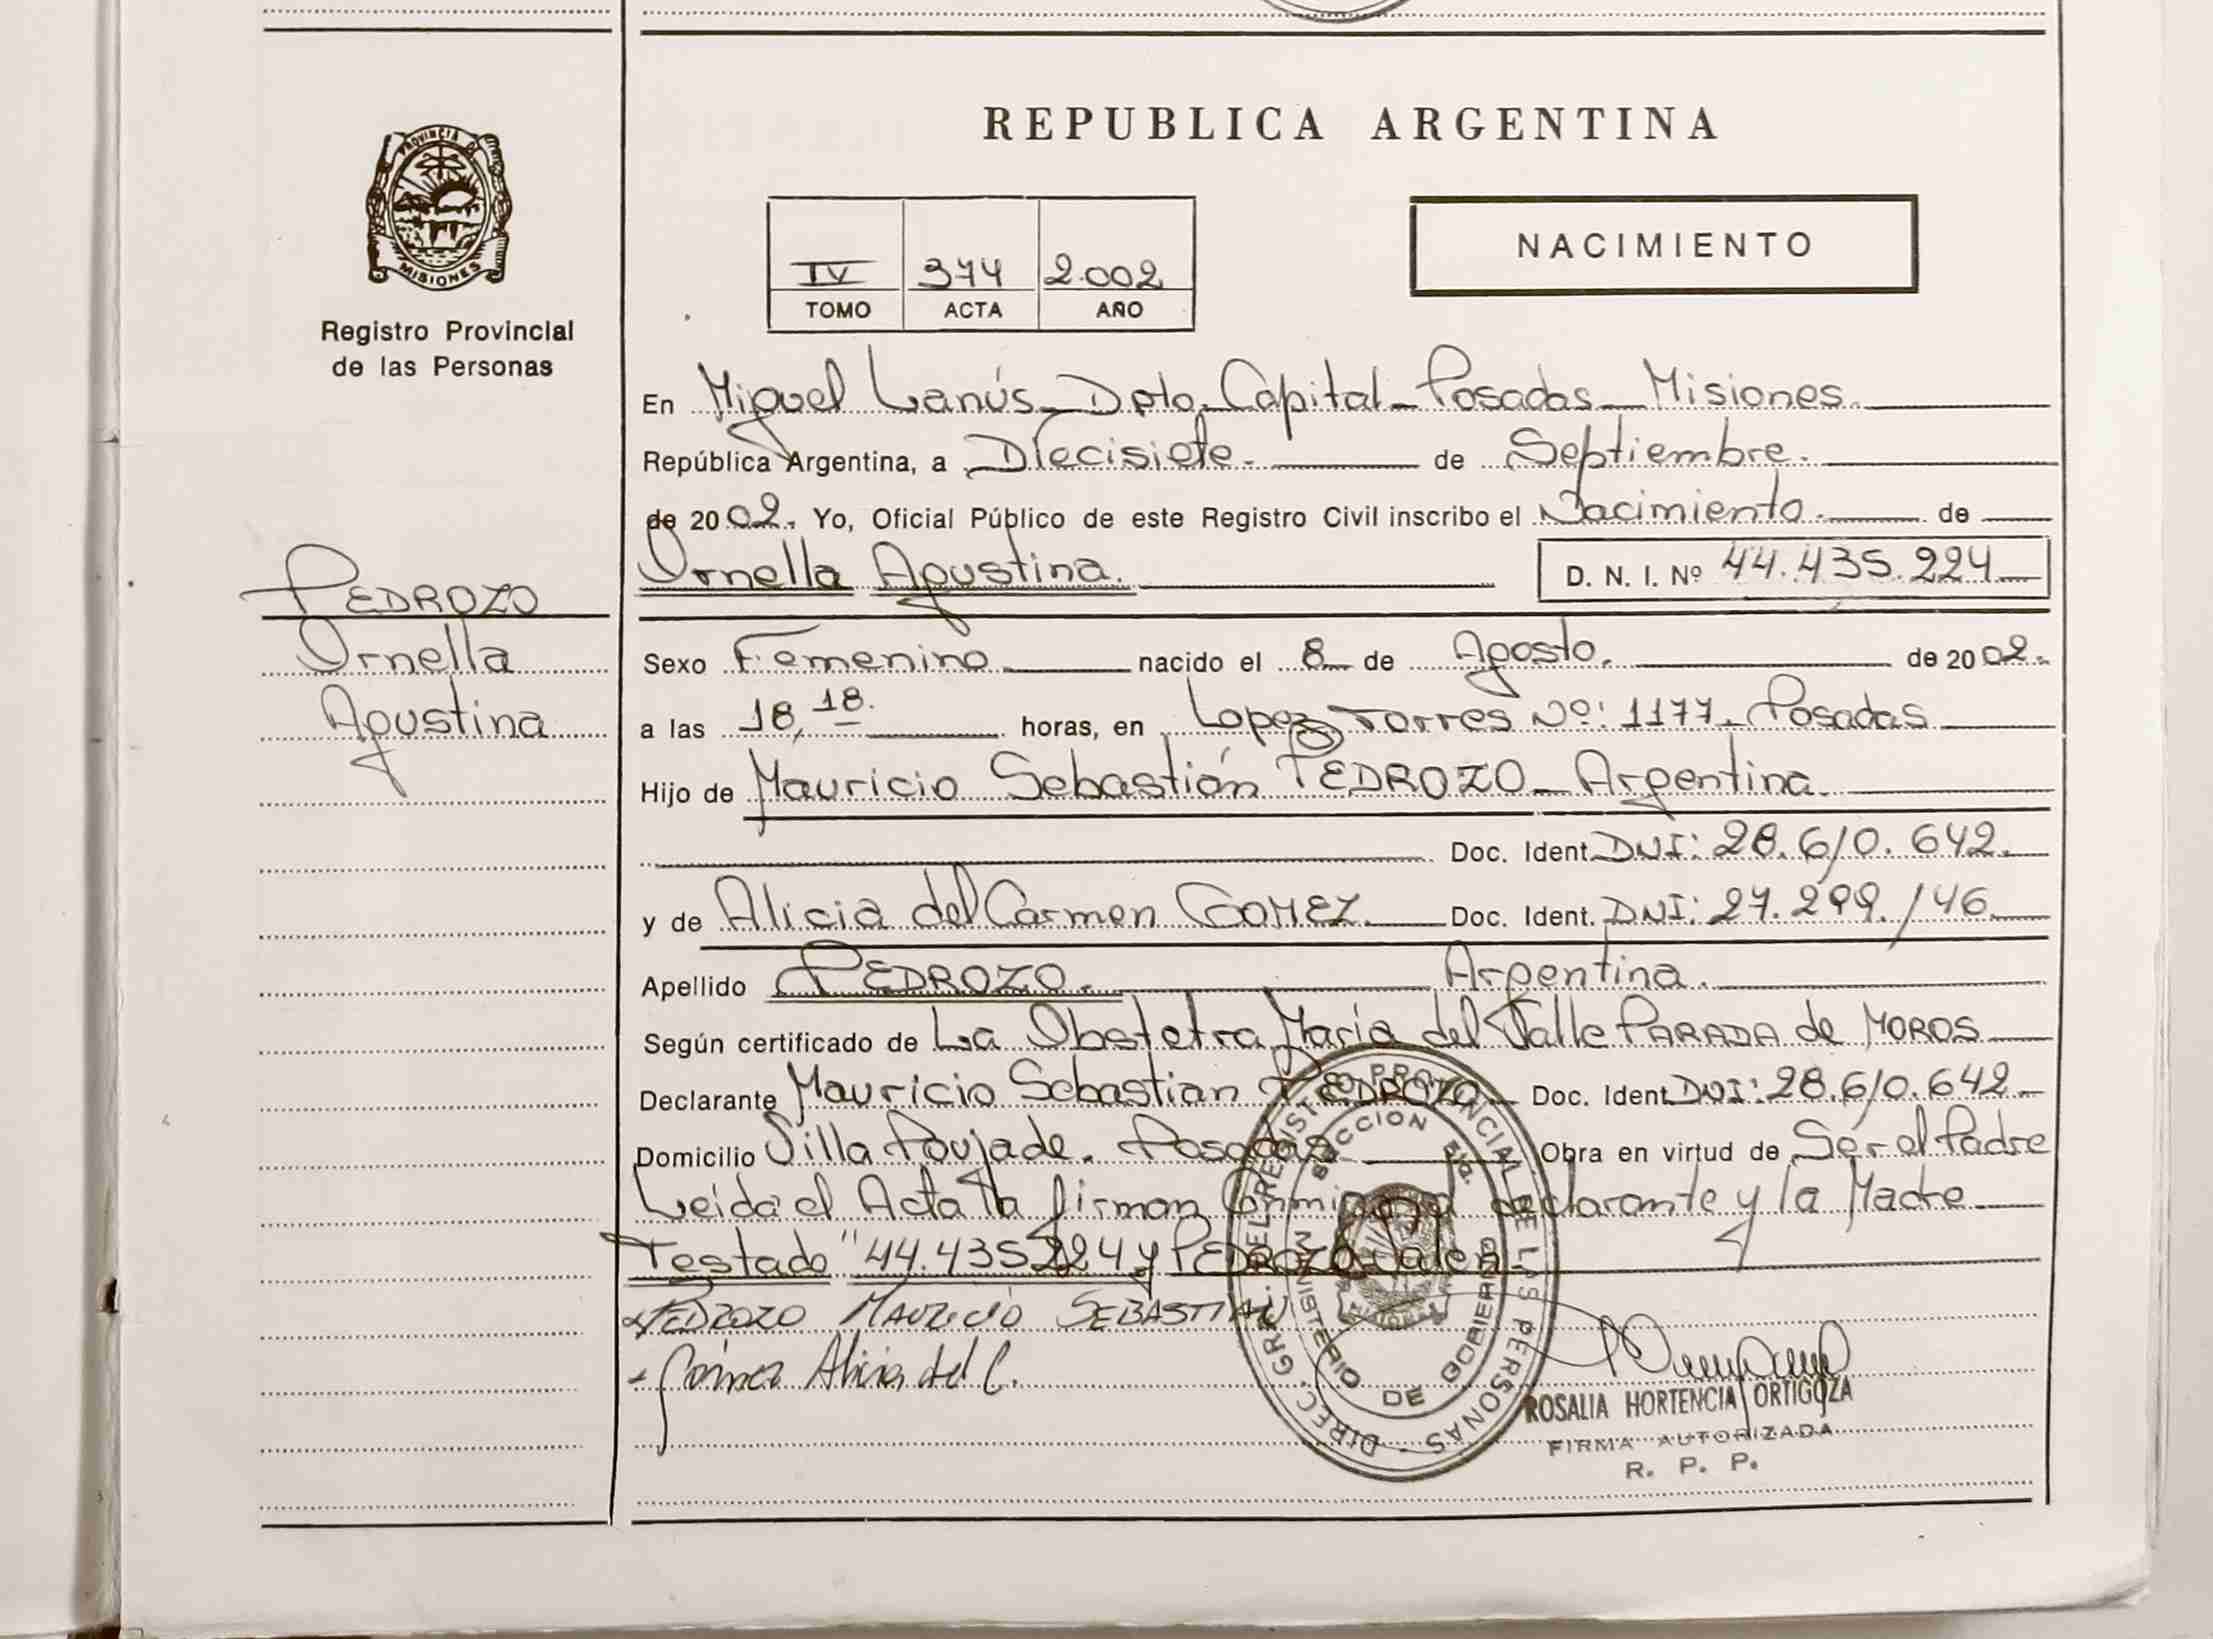 REPUBLICA ARGENTINA
PROVINCIA DE
MISIONES
Registro Provincial
de las Personas
NACIMIENTO
IV 374 2.002
TOMO ACTA AÑO
En Miguel Lanús - Dpto. Capital - Posadas - Misiones.
República Argentina, a Diecisiete. de Septiembre.
de 2002. Yo, Oficial Público de este Registro Civil inscribo el Nacimiento. de
Ornella Agustina. D. N. I. Nº 44.435.224
PEDROZO
Ornella
Agustina
Sexo Femenino nacido el 8 de Agosto. de 2002.
a las 18,18. horas, en Lopez Torres Nº: 1177. Posadas
Hijo de Mauricio Sebastián PEDROZO - Argentina.
Doc. Ident. DNI: 28.610.642.
y de Alicia del Carmen GOMEZ. Doc. Ident. DNI: 27.299.146
Apellido PEDROZO. Argentina.
Según certificado de La Obstetra María del Valle PARADA de MOROS
Declarante Mauricio Sebastian PEDROZO Doc. Ident. DNI: 28.610.642
Domicilio Villa Poujade. Posadas Obra en virtud de Ser el Padre
Leida el Acta la firman Conmigo el declarante y la Madre
Testado "44.435.224 y PEDROZO Valen
PEDROZO MAURICIO SEBASTIAN
Gómez Alicia del C.
DIREC. GRAL. DEL REGISTRO PROVINCIAL DE LAS PERSONAS
SECCION 5ta.
MINISTERIO DE GOBIERNO
ROSALIA HORTENCIA ORTIGOZA
FIRMA AUTORIZADA
R. P. P.